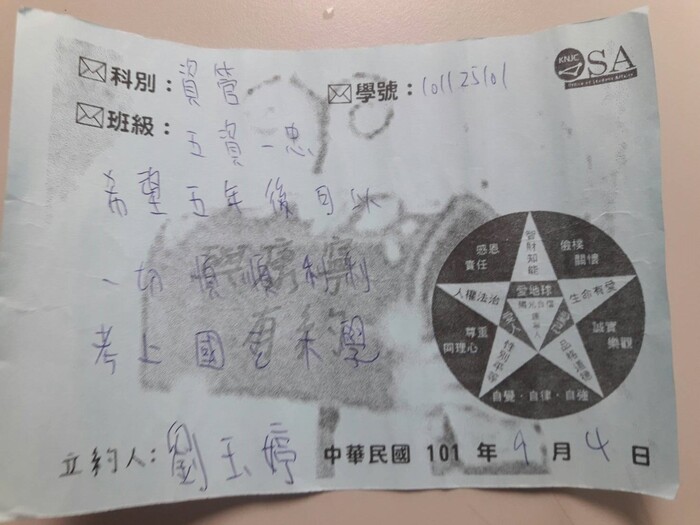 科別：資管
學號：101125101
KNJC
OSA
Office of Student Affairs
班級：五資一忠
希望五年後可以
一切順順利利
考上國立大學
智財知能
感恩
責任
儉樸
關懷
人權法治
愛地球
生命有愛
陽光自信
尊重
同理心
誠實
樂觀
性別平等
品格道德
自覺．自律．自強
立約人：劉玉婷
中華民國 101 年 9 月 4 日